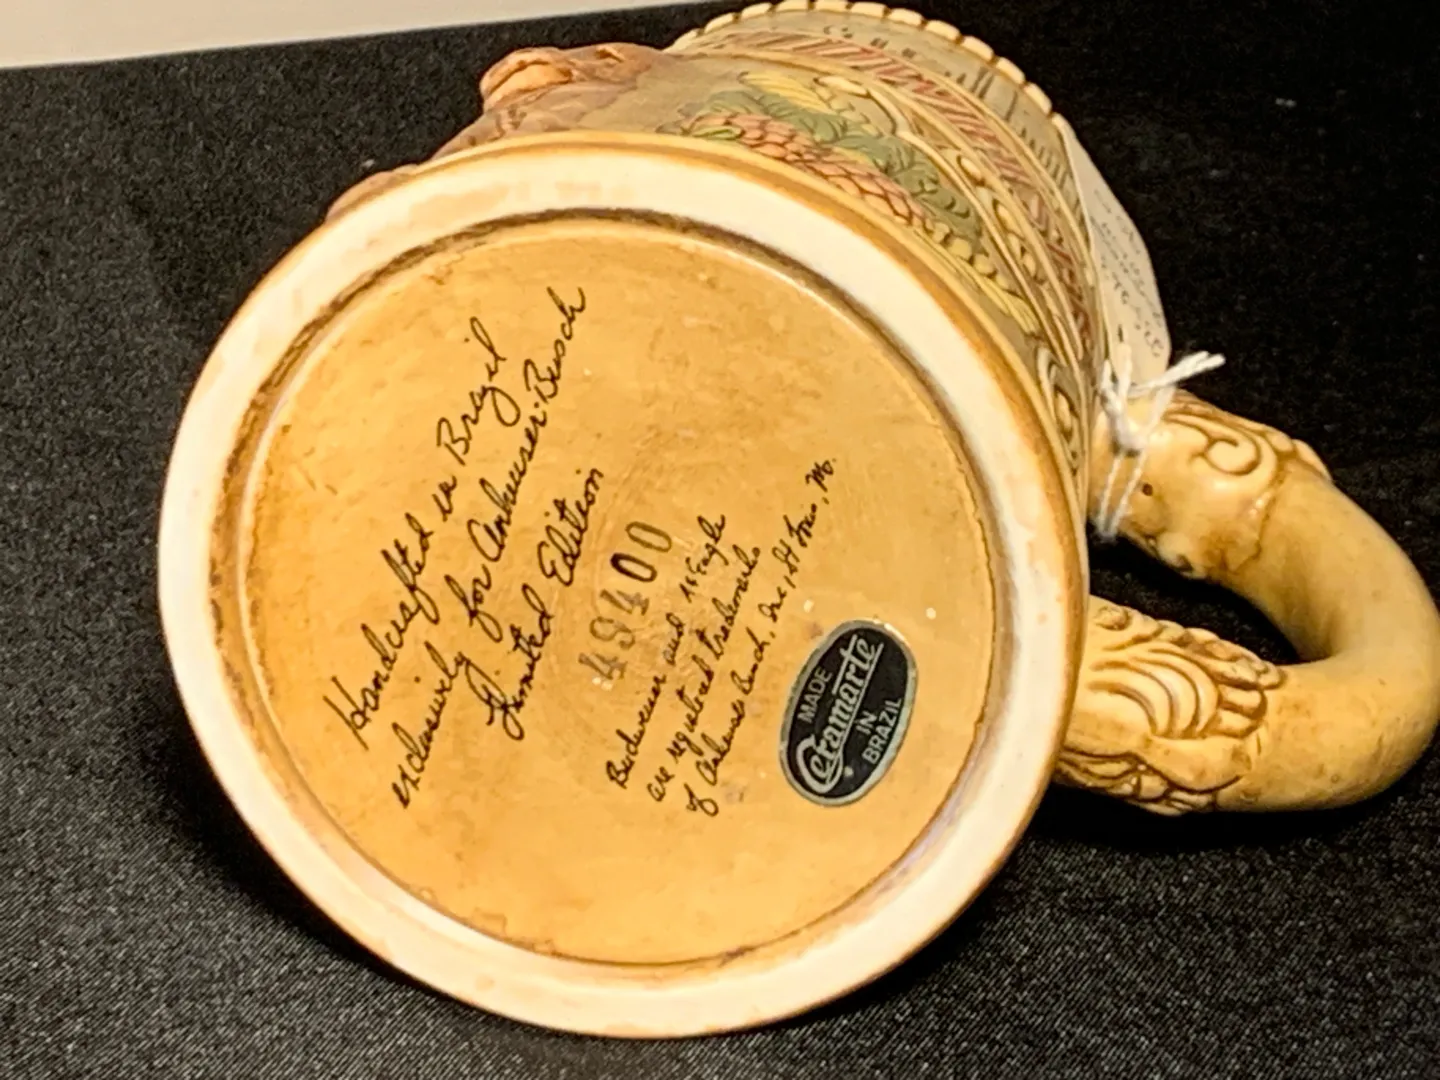 Handcrafted in Brazil
exclusively for Anheuser-Busch
Limited Edition
49400
Budweiser and A&Eagle
are registered trademarks
of Anheuser Busch, Inc, St Louis, Mo.
MADE
Ceramarte
IN
BRAZIL